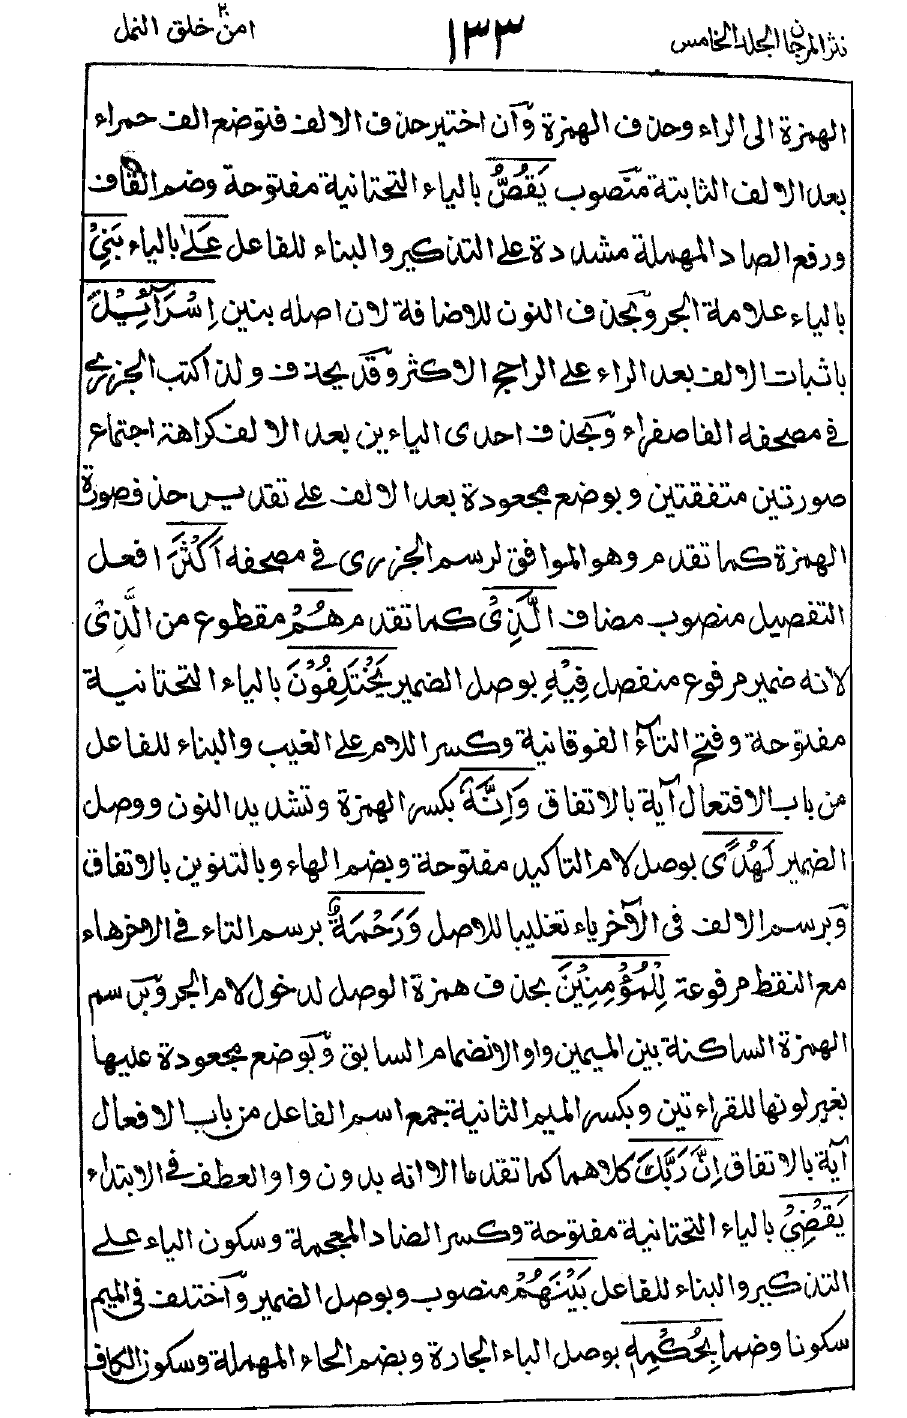 نثر المرجان الجلد الخامس
١٣٣
امن ٢٠ خلق النمل
الهمزة الى الراء وحذف الهمزة وان اختير حذف الالف فتوضع الف حمراء
بعد الالف الثابتة منصوب يَقُصُّ بالياء التحتانية مفتوحة وضم القاف
ورفع الصاد المهملة مشددة على التذكير والبناء للفاعل عَلىٰ بالياء بَنِيْ
بالياء علامة الجر وبحذف النون للاضافة لان اصله بنين اِسْرَآئِيْلَ
باثبات الالف بعد الراء على الراجح الاكثر وقد يحذف ولذا كتب الجزري
في مصحفه الفا صفراء وبحذف احدى الياءين بعد الالف كراهة اجتماع
صورتين متفقتين وبوضع مجعودة بعد الالف على تقدير حذف صورة
الهمزة كما تقدم وهو الموافق لرسم الجزري في مصحفه اَكْثَرَ افعل
التفضيل منصوب مضاف الَّذِىْ كما تقدم هُمْ مقطوع من الَّذِىْ
لانه ضمير مرفوع منفصل فِيْهِ بوصل الضمير يَخْتَلِفُوْنَ بالياء التحتانية
مفتوحة وفتح التاء الفوقانية وكسر اللام على الغيب والبناء للفاعل
من باب الافتعال آية بالاتفاق وَاِنَّهٗ بكسر الهمزة وتشديد النون ووصل
الضمير لَهُدًى بوصل لام التاكيد مفتوحة وبضم الهاء وبالتنوين بالاتفاق
وبرسم الالف في الآخر ياء تغليبا للاصل وَرَحْمَةٌ برسم التاء في الاخر هاء
مع النقط مرفوعة لِلْمُؤْمِنِيْنَ بحذف همزة الوصل لدخول لام الجر وبرسم
الهمزة الساكنة بين الميمين واوا لانضمام السابق وبوضع مجعودة عليها
بغير لونها للقراءتين وبكسر الميم الثانية جمع اسم الفاعل من باب الافعال
آية بالاتفاق اِنَّ رَبَّكَ كلاهما كما تقدما الا انه بدون واو العطف في الابتداء
يَقْضِيْ بالياء التحتانية مفتوحة وكسر الضاد المعجمة وسكون الياء على
التذكير والبناء للفاعل بَيْنَهُمْ منصوب وبوصل الضمير واختلف في الميم
سكونا وضما بِحُكْمِهٖ بوصل الباء الجارة وبضم الحاء المهملة وسكون الكاف